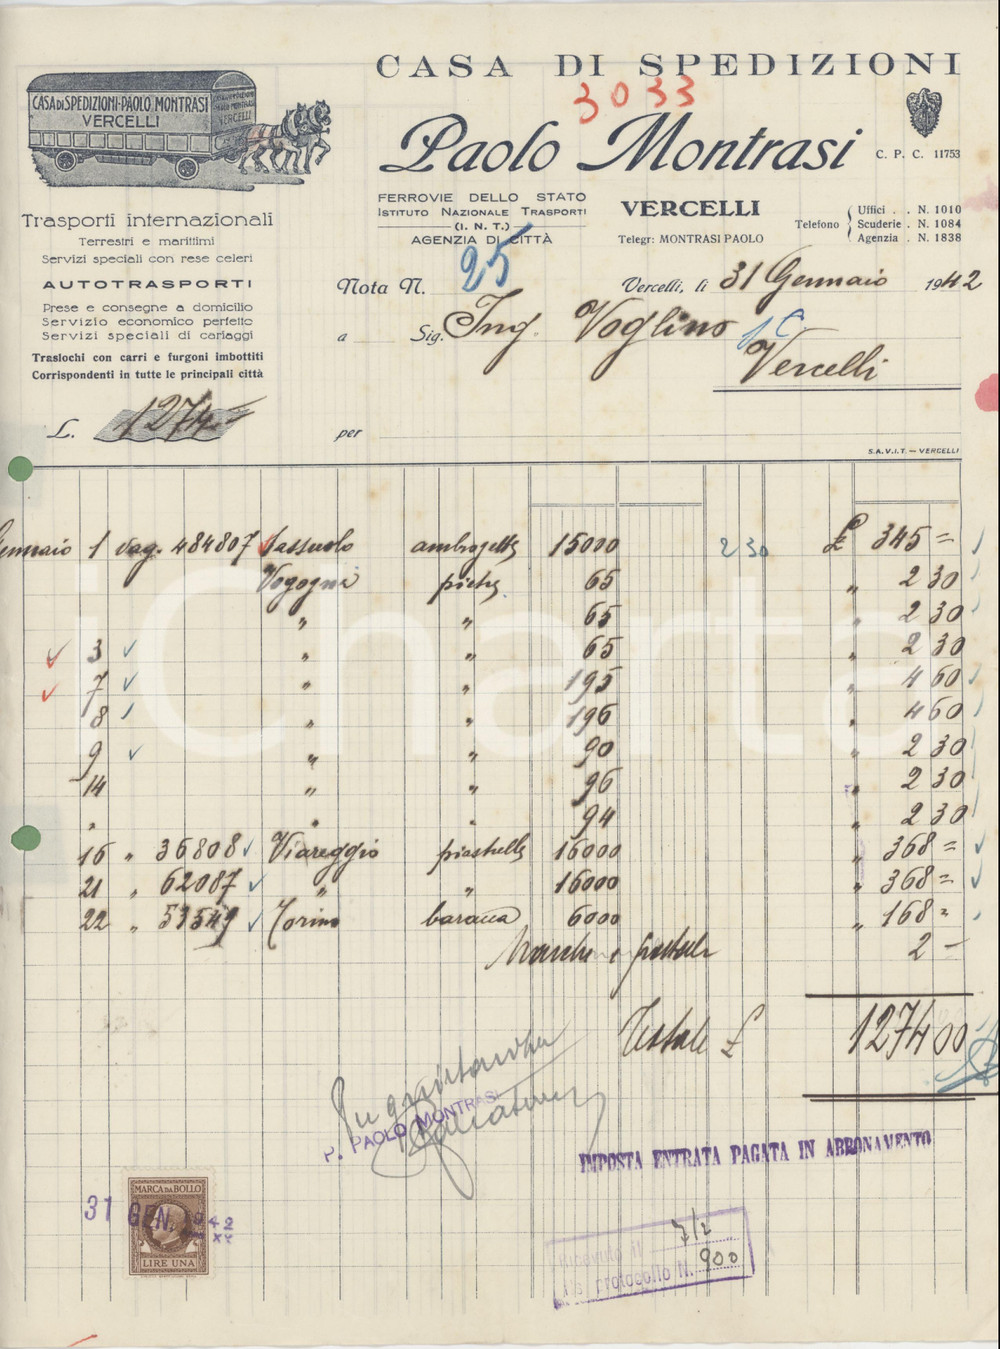 CASA DI SPEDIZIONI
3033
CASA DI SPEDIZIONI·PAOLO MONTRASI
VERCELLI
Paolo Montrasi
C. P. C. 11753
FERROVIE DELLO STATO
ISTITUTO NAZIONALE TRASPORTI
(I. N. T.)
AGENZIA DI CITTÀ
VERCELLI
Telegr: MONTRASI PAOLO
Telefono
Uffici . . N. 1010
Scuderie . N. 1084
Agenzia . N. 1838
Trasporti internazionali
Terrestri e marittimi
Servizi speciali con rese celeri
AUTOTRASPORTI
Prese e consegne a domicilio
Servizio economico perfetto
Servizi speciali di cariaggi
Traslochi con carri e furgoni imbottiti
Corrispondenti in tutte le principali città
Nota N. 25
Vercelli, li 31 Gennaio 1942
a Sig. Ing. Voglino
Vercelli
L. 1274.-
per
S.A.V.I.T. — VERCELLI
Gennaio 1 vag. 484807 Sassuolo 15000 2 30 £ 345 =
Vogogna pietre 65 " 2 30
" " 65 " 2 30
3 " " 65 " 2 30
7 " " 195 " 4 60
8 " " 196 " 4 60
9 " " 90 " 2 30
14 " " 96 " 2 30
" " " 94 " 2 30
16 " 36808 Viareggio piastrelle 16000 " 368 =
21 " 62087 " " 16000 " 368 =
22 " 53549 Torino baracca 6000 " 168 =
Marche e postali 2 -
Totale £ 1274 00
P. PAOLO MONTRASI
IMPOSTA ENTRATA PAGATA IN ABBONAMENTO
MARCA DA BOLLO
31 GEN. 1942 XX
LIRE UNA
Ricevuto il 7/2
N. protocollo N. 900
iCharta